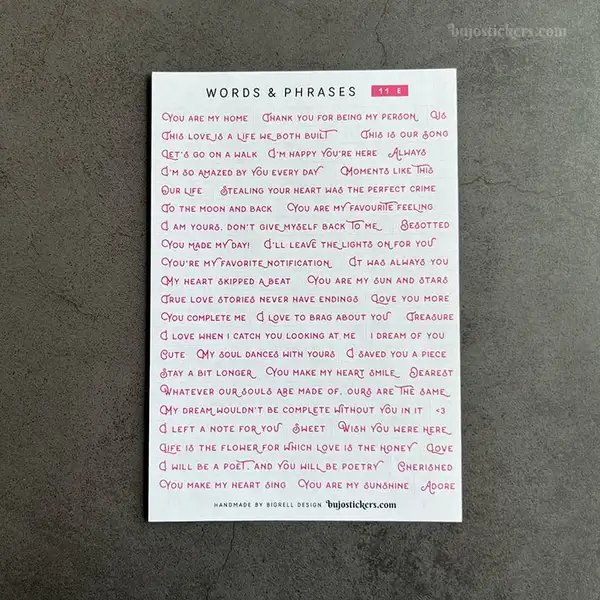 bujostickers.com
WORDS & PHRASES 11 E
YOU ARE MY HOME THANK YOU FOR BEING MY PERSON US
THIS LOVE IS A LIFE WE BOTH BUILT THIS IS OUR SONG
LET'S GO ON A WALK I'M HAPPY YOU'RE HERE ALWAYS
I'M SO AMAZED BY YOU EVERY DAY MOMENTS LIKE THIS
OUR LIFE STEALING YOUR HEART WAS THE PERFECT CRIME
TO THE MOON AND BACK YOU ARE MY FAVOURITE FEELING
I AM YOURS, DON'T GIVE MYSELF BACK TO ME BESOTTED
YOU MADE MY DAY! I'LL LEAVE THE LIGHTS ON FOR YOU
YOU'RE MY FAVORITE NOTIFICATION IT WAS ALWAYS YOU
MY HEART SKIPPED A BEAT YOU ARE MY SUN AND STARS
TRUE LOVE STORIES NEVER HAVE ENDINGS LOVE YOU MORE
YOU COMPLETE ME I LOVE TO BRAG ABOUT YOU TREASURE
I LOVE WHEN I CATCH YOU LOOKING AT ME I DREAM OF YOU
CUTE MY SOUL DANCES WITH YOURS I SAVED YOU A PIECE
STAY A BIT LONGER YOU MAKE MY HEART SMILE DEAREST
WHATEVER OUR SOULS ARE MADE OF, OURS ARE THE SAME
MY DREAM WOULDN'T BE COMPLETE WITHOUT YOU IN IT <3
I LEFT A NOTE FOR YOU SWEET WISH YOU WERE HERE
LIFE IS THE FLOWER FOR WHICH LOVE IS THE HONEY LOVE
I WILL BE A POET, AND YOU WILL BE POETRY CHERISHED
YOU MAKE MY HEART SING YOU ARE MY SUNSHINE ADORE
HANDMADE BY BIGRELL DESIGN bujostickers.com